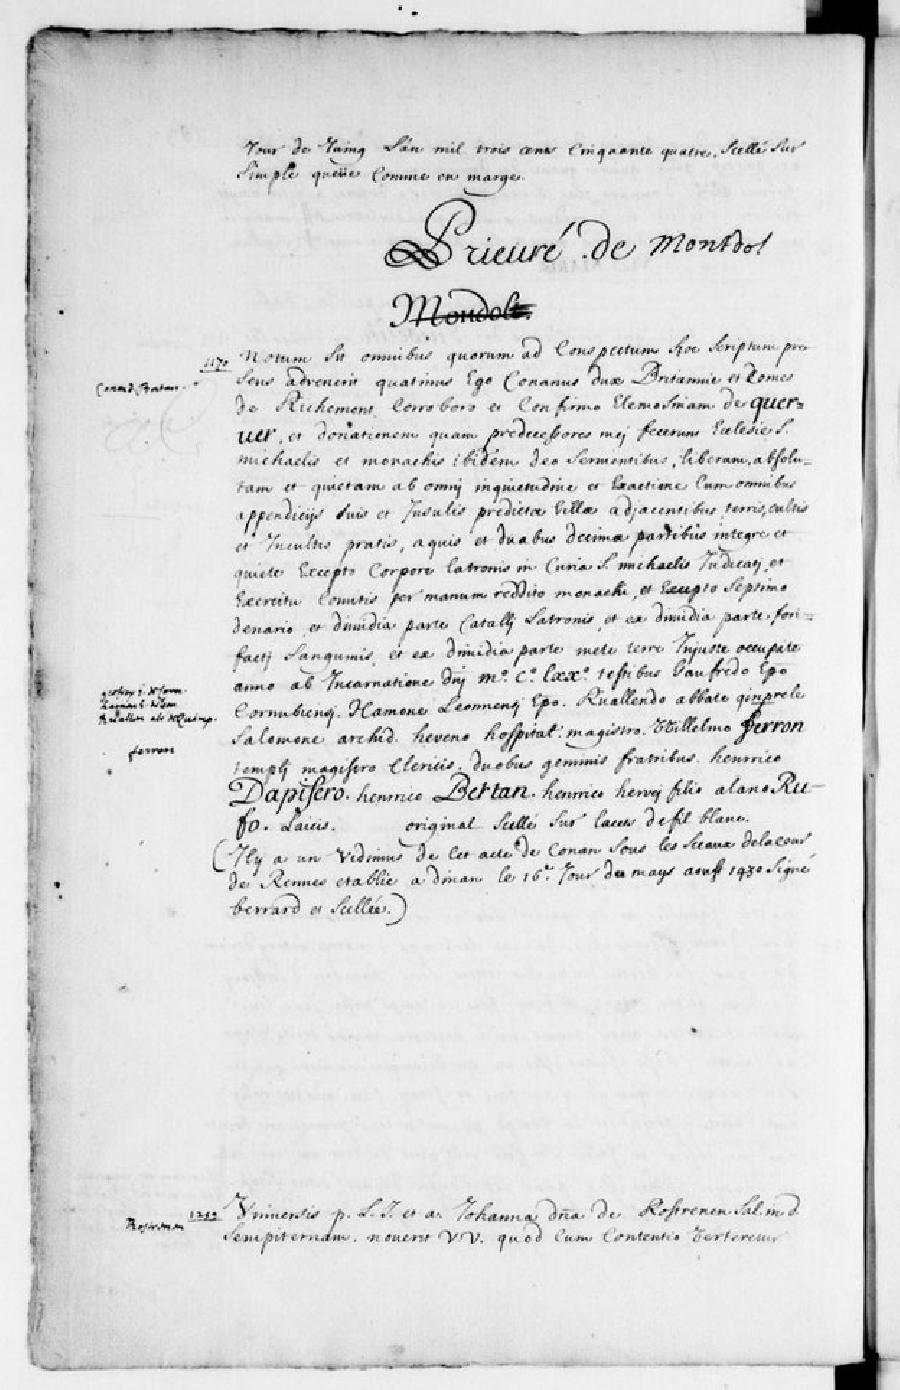 Jour de Juing L'an mil trois cens Cinquante quatre. Scellé sur
simple queüe Comme en marge.
Prieuré de Montdol
Mondol
1170
Notum sit omnibus quorum ad Conspectum hoc scriptum pre
sens advenerit quatinus Ego Conanus dux Britannie et Comes
Conan d. Bretan.
de Richemont, Corroboro et Confirmo Elemosinam de quer=
uer, et donationem quam predecessores mej fecerunt Ecclesie S.
michaelis et monachis ibidem deo servientibus, liberam, absolu=
tam et quietam ab omnj inquietudine et Exactione Cum omnibus
appendicijs suis et Insulis predictæ Villæ adjacentibus, terris, cultis
et Incultis pratis, aquis et duabus decimæ partibus integre et
quiete Excepto Corpore Latronis in Curia S. michaelis Judicatj, et
Exercitu Comitis per manum reddito monachi, et Excepto septimo
denario, et dimidia parte Catallj Latronis, et ex dimidia parte fori=
factj Sanguinis, et ex dimidia parte mete terre Injuste occupate
anno ab Incarnatione dnj m°. C°. lxx°. testibus Gaufredo Epo
Cornubiensj. Hamone Leonnensj Epo. Ruallendo abbate
Salomone archid. heveno hospital. magistro. Willelmo ferron
ferron
templj magistro Clericis. duobus geminis fratribus. henrico
Dapifero. henrico Bertan. henrico hervej filio alano Ru-
fo. Laicis. original scellé sur lacets de fil blanc.
(Il y a un Vidimus de Cet acte de Conan sous les sceaux de la cour
de Rennes etablie a dinan le 16e. Jour de mays 1430 signé
berrard et scellée.)
1252
Universis p. L. I. et a. Johanna dña de Rostrenen Sal. in d.
Rostrenen
sempiternam. noverit V.V. quod Cum Contentio Verteretur